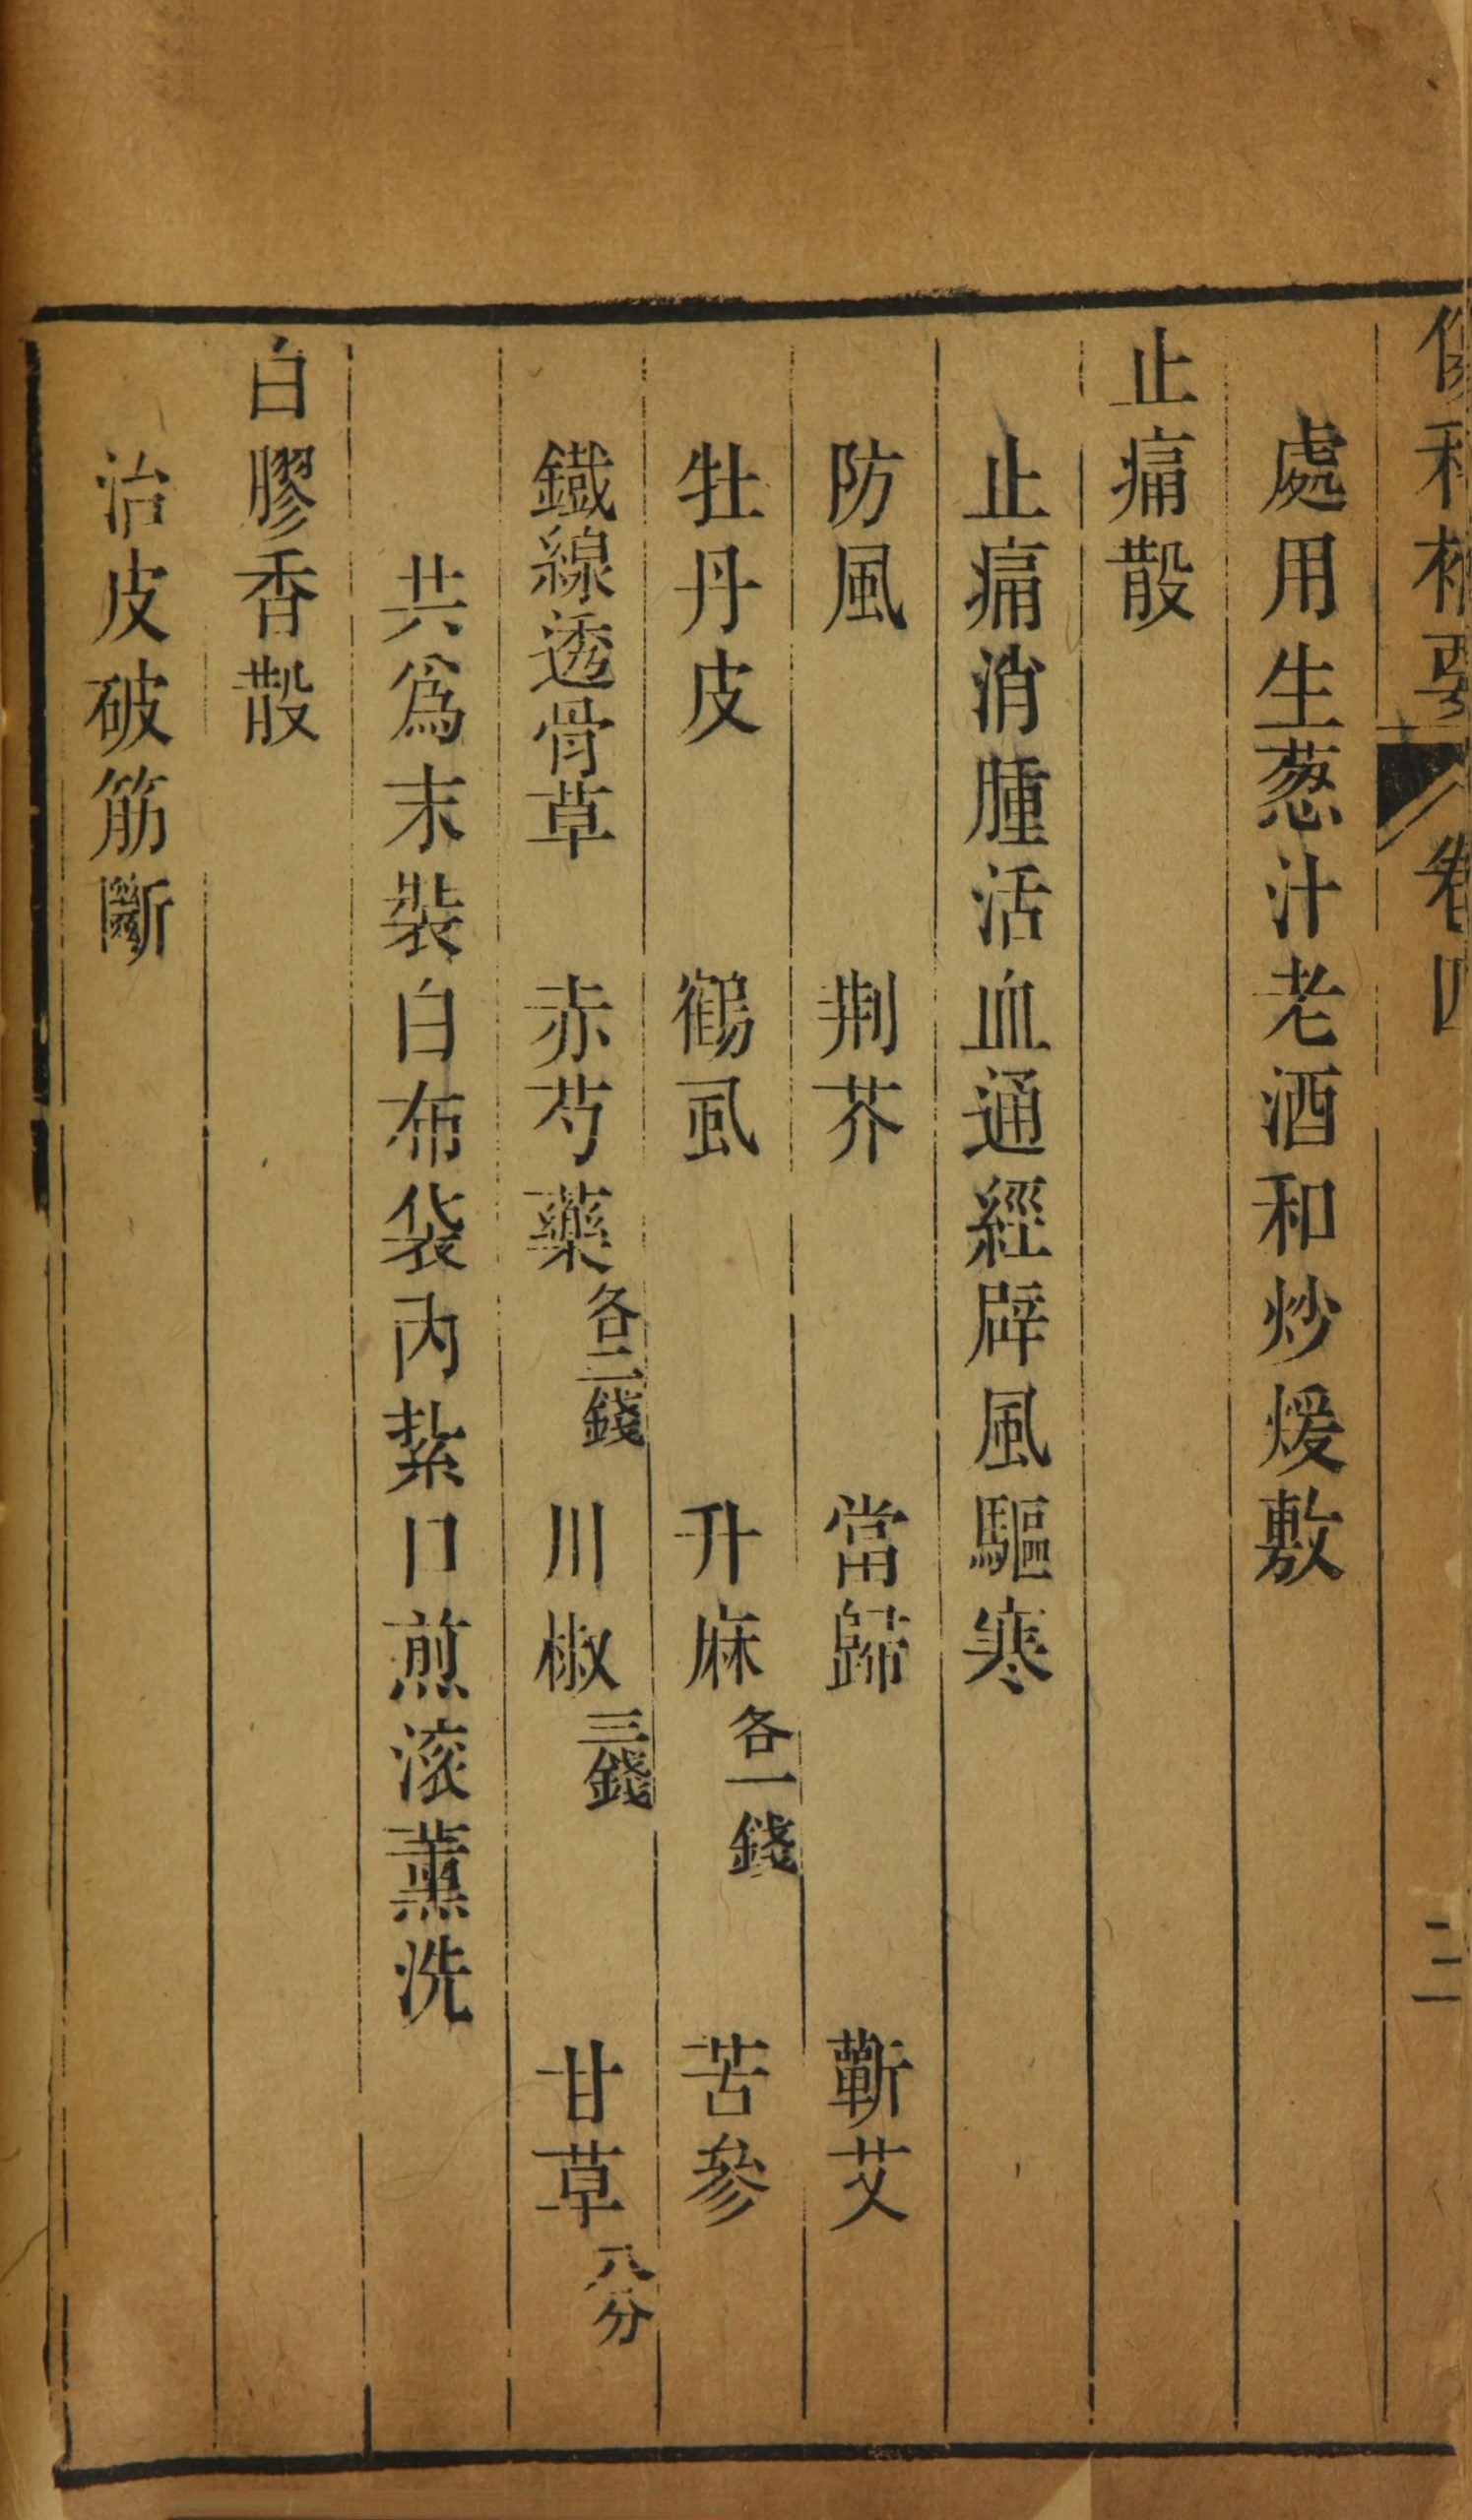 傷科補要 卷四 二
處用生葱汁老酒和炒煖敷
止痛散
止痛消腫活血通經辟風驅寒
防風 荆芥 當歸 蘄艾
牡丹皮 鶴虱 升麻各一錢 苦參
鐵線透骨草 赤芍藥各二錢 川椒三錢 甘草八分
共爲末裝白布袋內紮口煎滚薰洗
白膠香散
治皮破筋斷